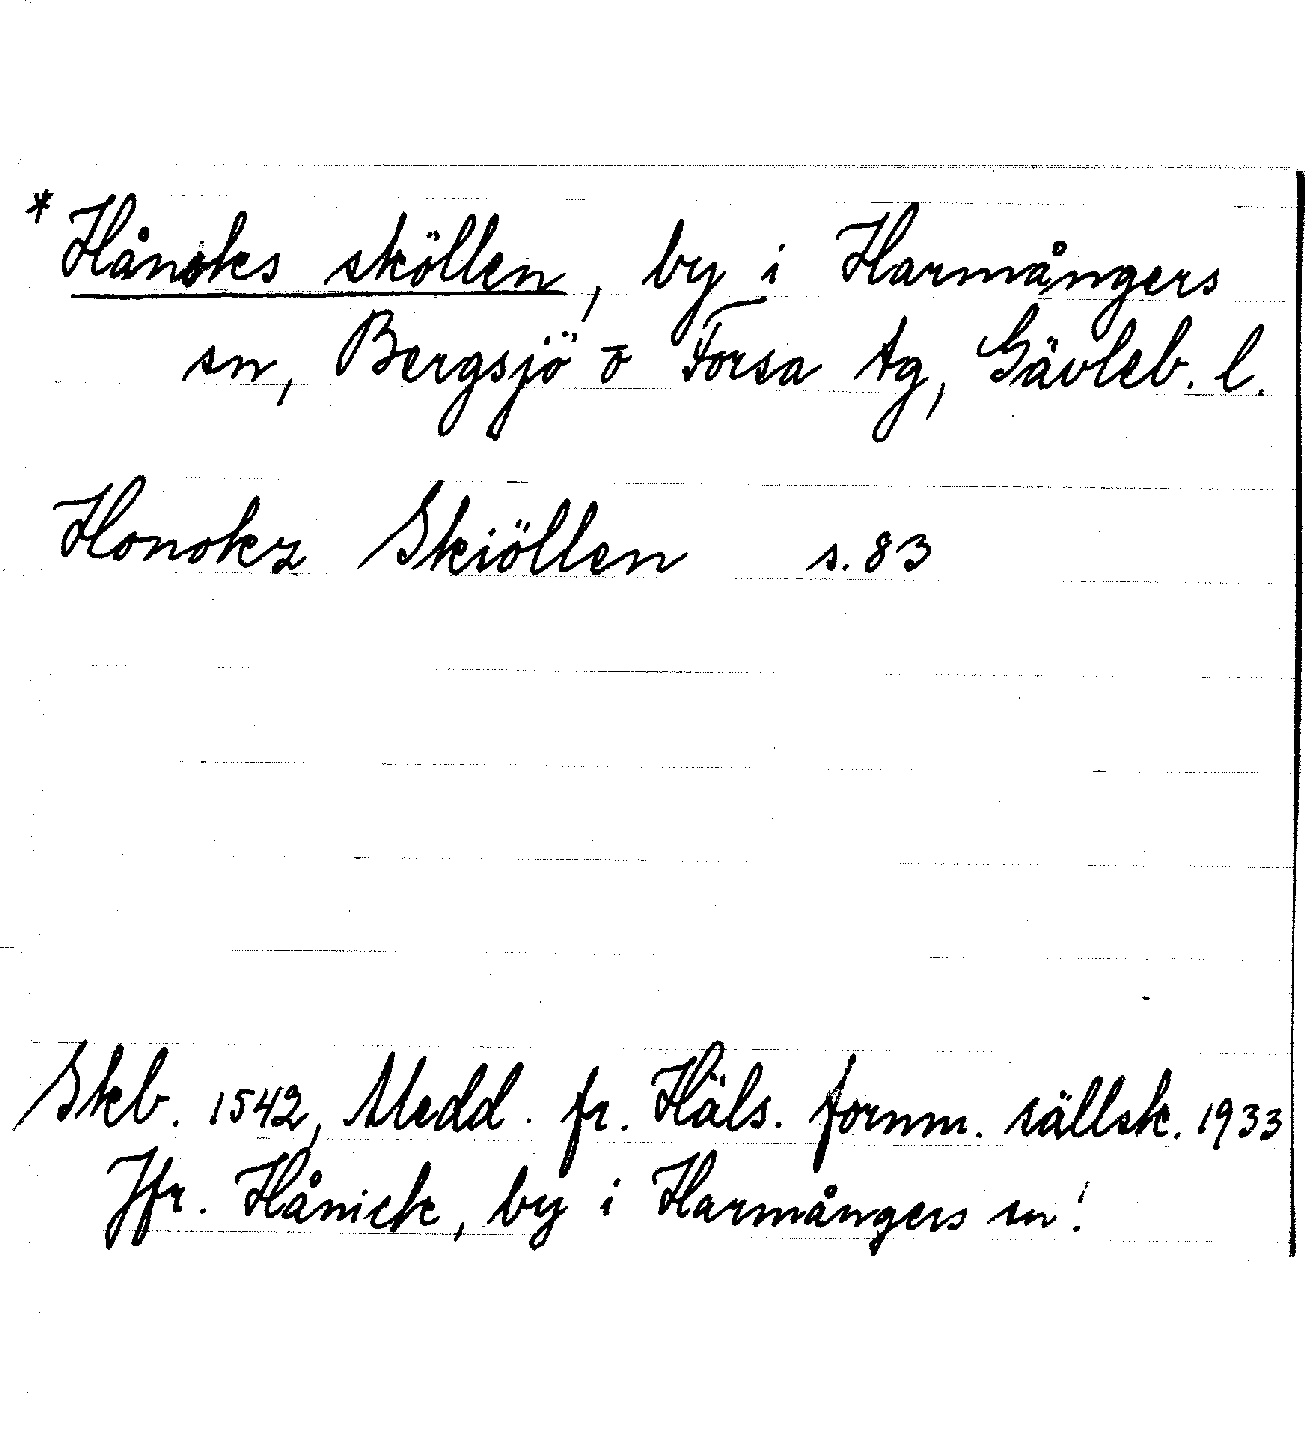 * Hånoks sköllen, by i Harmångers
sn, Bergsjö o Forsa tg, Gävleb. l.
Honokz Skiöllen s. 83
Skb. 1542, Medd. fr. Häls. fornm. sällsk. 1933
Jfr. Hånick, by i Harmångers sn!